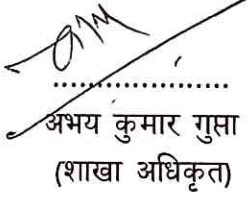 ....................
अभय कुमार गुप्ता
(शाखा अधिकृत)